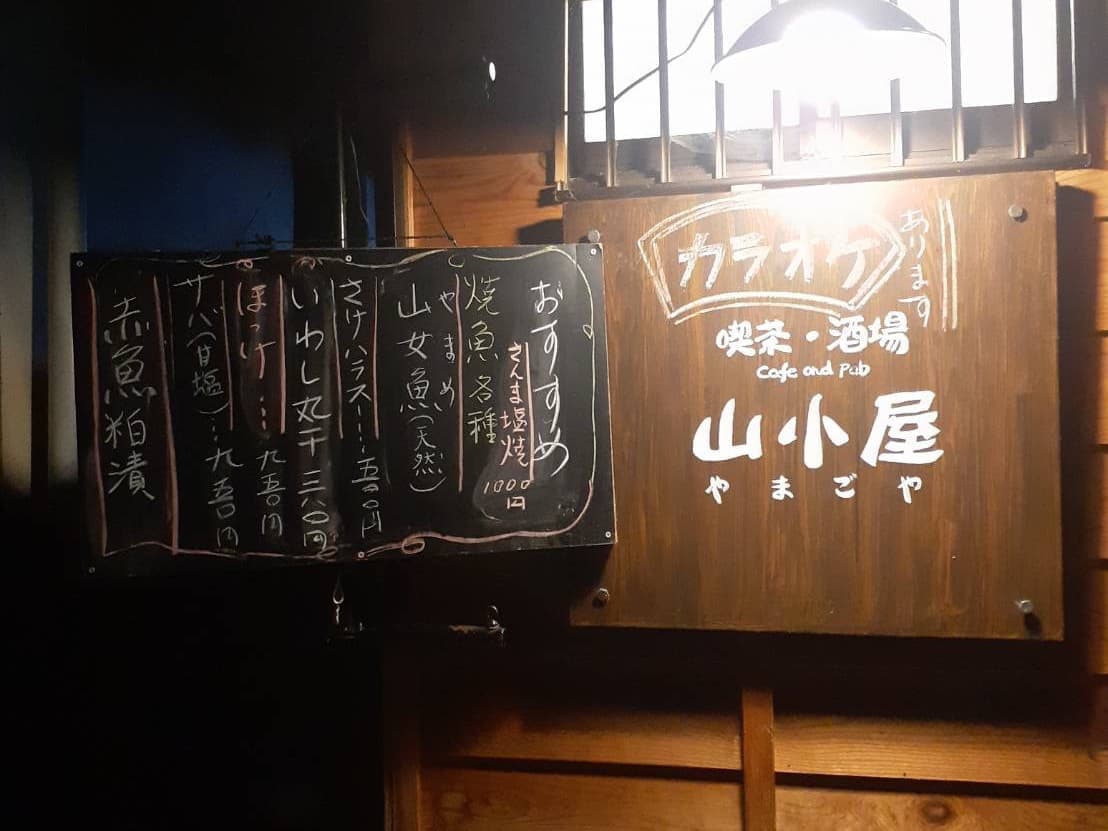 おすすめ
さんま塩焼
1000円
焼魚各種
やまめ
山女魚(天然)
さけハラス…五五〇円
いわし丸干三八〇円
ほっけ…九五〇円
サバ(甘塩)…九五〇円
赤魚粕漬
カラオケ
あります
喫茶・酒場
Cafe and Pub
山小屋
やまごや